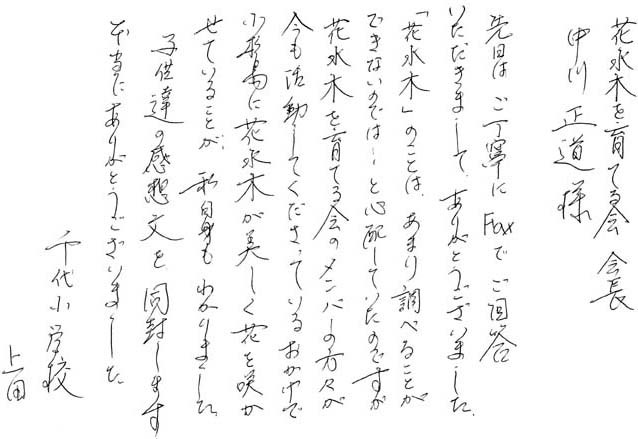 花水木を育てる会 会長
中川 正道 様
先日は ご丁寧に Faxで ご回答
いただきまして、ありがとうございました。
「花水木」のことは、あまり調べることが
できないのでは…と心配していたのですが
花水木を育てる会のメンバーの方々が
今も活動してくださっているおかげで
小松島に花水木が美しく花を咲か
せていることが、私自身も わかりました。
子供達の感想文を 同封します
本当にありがとうございました。
千代小学校
上田